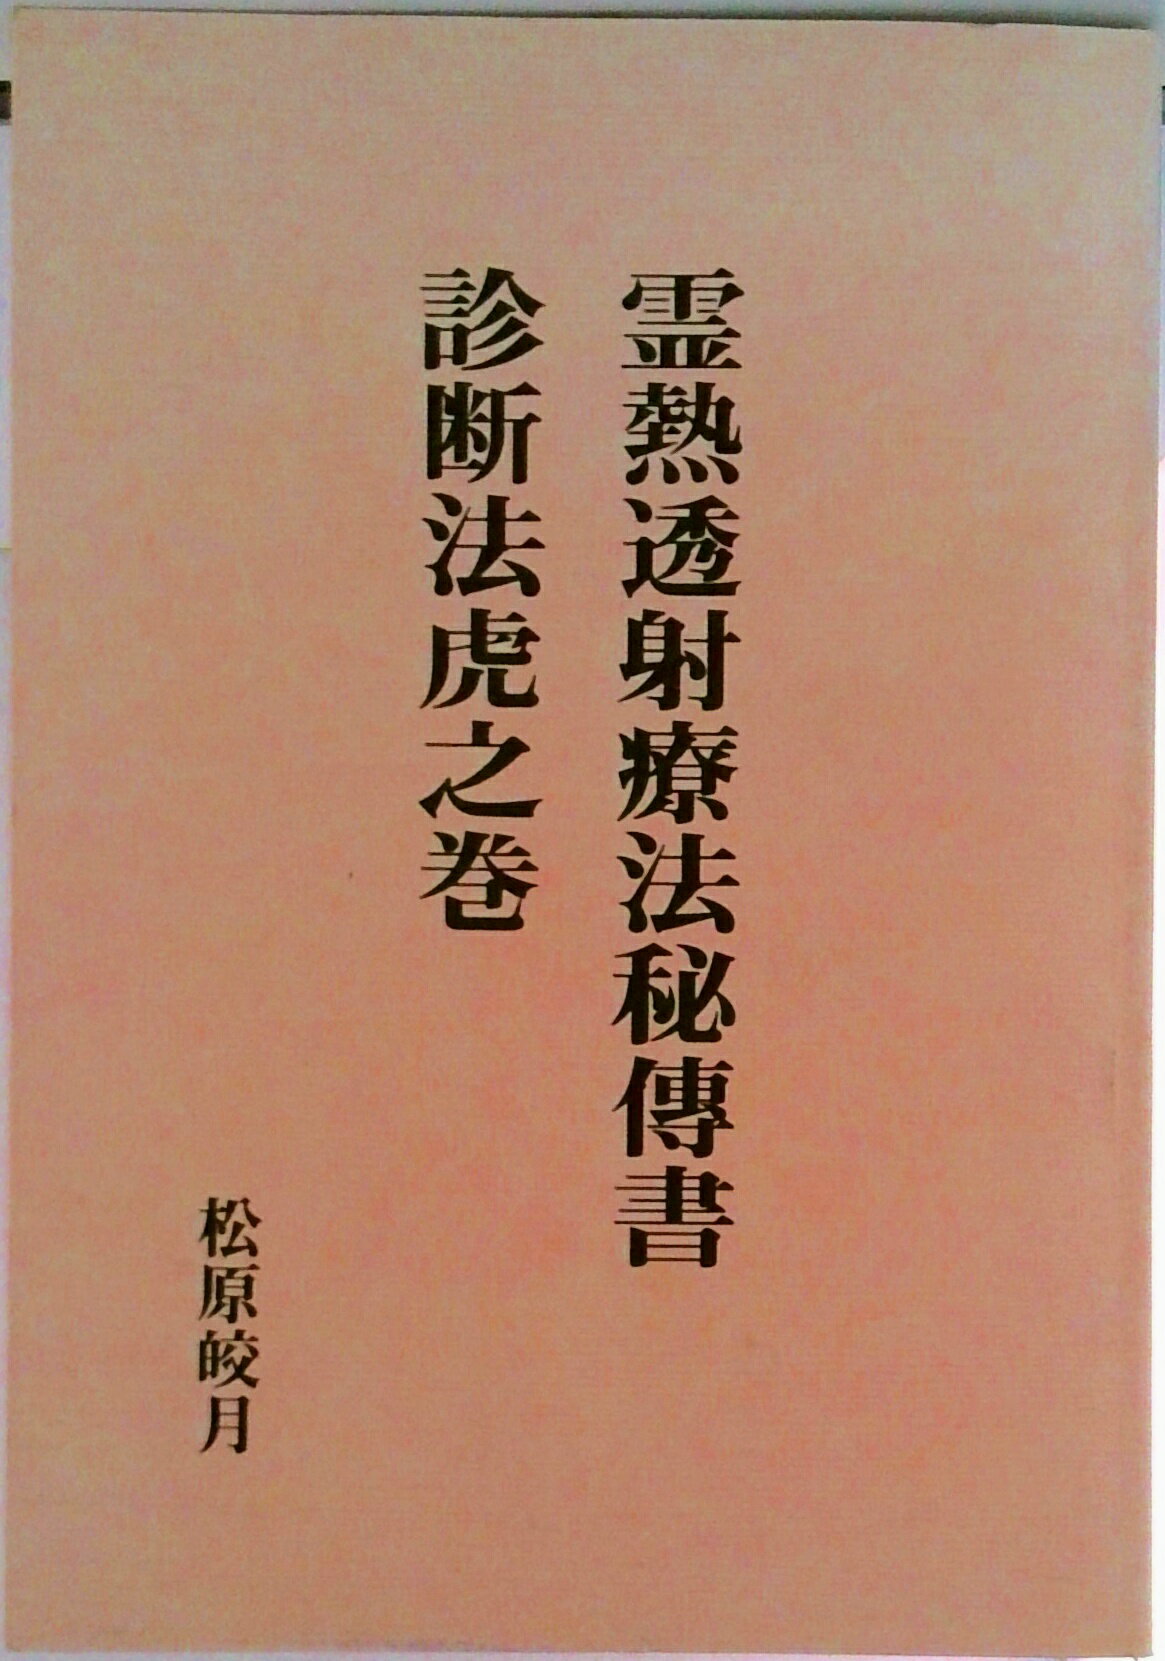 霊熱透射療法秘傳書
診断法虎之巻
松原皎月